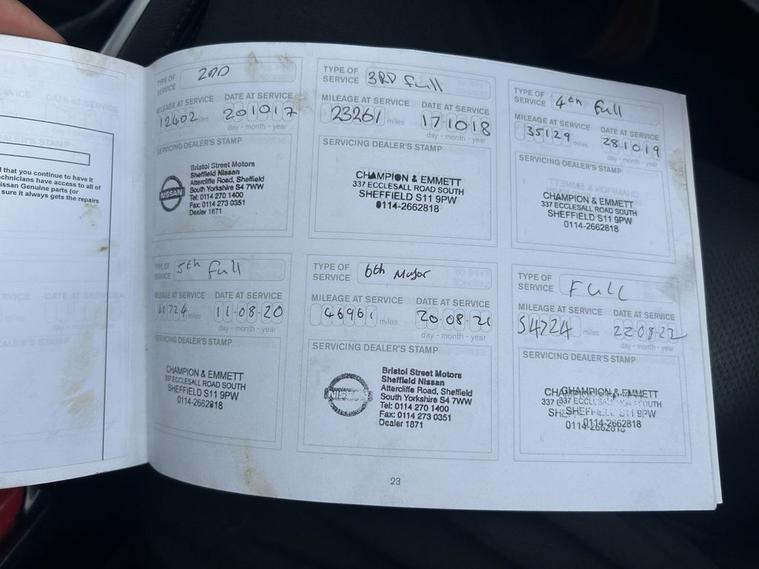 DEALER'S STAMP
d that you continue to have it
echnicians have access to all of
issan Genuine parts (or
sure it always gets the repairs
TYPE OF SERVICE 2ND
MILEAGE AT SERVICE DATE AT SERVICE
12402 miles 201017
day - month - year
SERVICING DEALER'S STAMP
NISSAN
Bristol Street Motors
Sheffield Nissan
Attercliffe Road, Sheffield
South Yorkshire S4 7WW
Tel: 0114 270 1400
Fax: 0114 273 0351
Dealer 1871
TYPE OF SERVICE 3RD Full
MILEAGE AT SERVICE DATE AT SERVICE
23261 miles 171018
day - month - year
SERVICING DEALER'S STAMP
CHAMPION & EMMETT
337 ECCLESALL ROAD SOUTH
SHEFFIELD S11 9PW
0114-2662818
TYPE OF SERVICE 4th Full
MILEAGE AT SERVICE DATE AT SERVICE
35129 miles 281019
day - month - year
SERVICING DEALER'S STAMP
CHAMPION & EMMETT
337 ECCLESALL ROAD SOUTH
SHEFFIELD S11 9PW
0114-2662818
TYPE OF SERVICE 5th Full
MILEAGE AT SERVICE DATE AT SERVICE
miles 11-08-20
day - month - year
SERVICING DEALER'S STAMP
CHAMPION & EMMETT
337 ECCLESALL ROAD SOUTH
SHEFFIELD S11 9PW
0114-2662818
TYPE OF SERVICE 6th Major
MILEAGE AT SERVICE DATE AT SERVICE
46961 miles 20-08-21
day - month - year
SERVICING DEALER'S STAMP
NISSAN
Bristol Street Motors
Sheffield Nissan
Attercliffe Road, Sheffield
South Yorkshire S4 7WW
Tel: 0114 270 1400
Fax: 0114 273 0351
Dealer 1871
TYPE OF SERVICE FULL
MILEAGE AT SERVICE DATE AT SERVICE
54724 miles 22-08-22
day - month - year
SERVICING DEALER'S STAMP
CHAMPION & EMMETT
337 ECCLESALL ROAD SOUTH
SHEFFIELD S11 9PW
0114-2662818
23